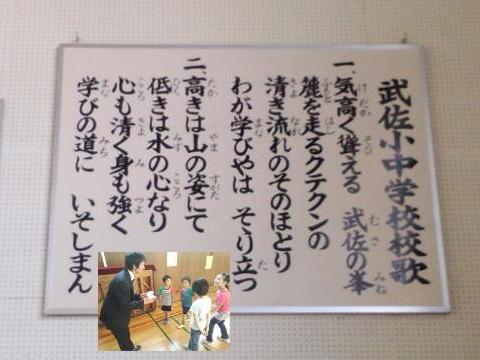 武佐小中学校校歌
一、気高く聳える 武佐の峯
麓を走るクテクンの
清き流れのそのほとり
わが学びやは そゝり立つ
二、高きは山の姿にて
低きは水の心なり
心も清く身も強く
学びの道に いそしまん